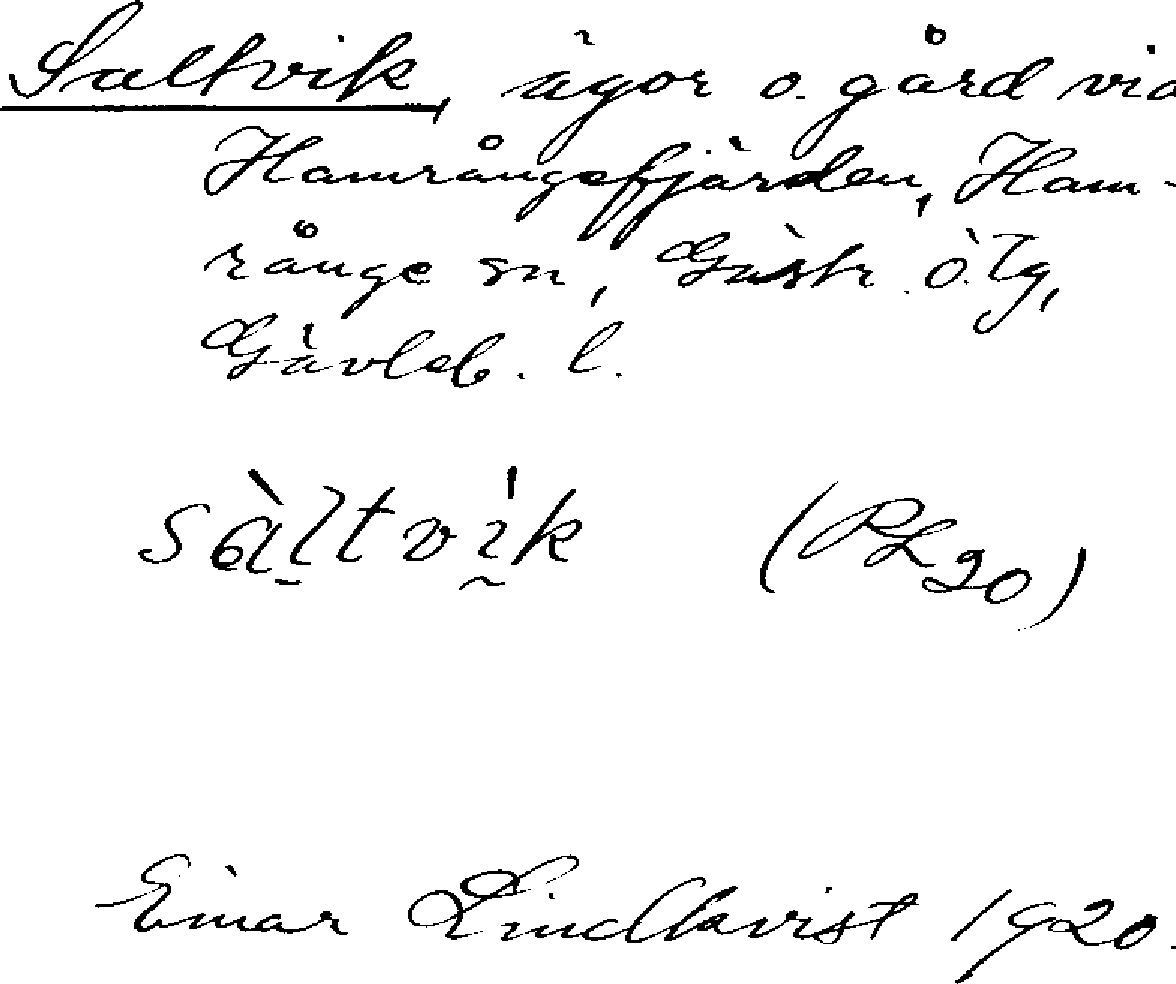 Saltvik, ägor o. gård vid
Hamrångefjärden, Ham-
rånge sn, Gästr. ö. Tg,
Gävleb. l.
sàltvik (PL20)
Einar Lindkvist 1920.